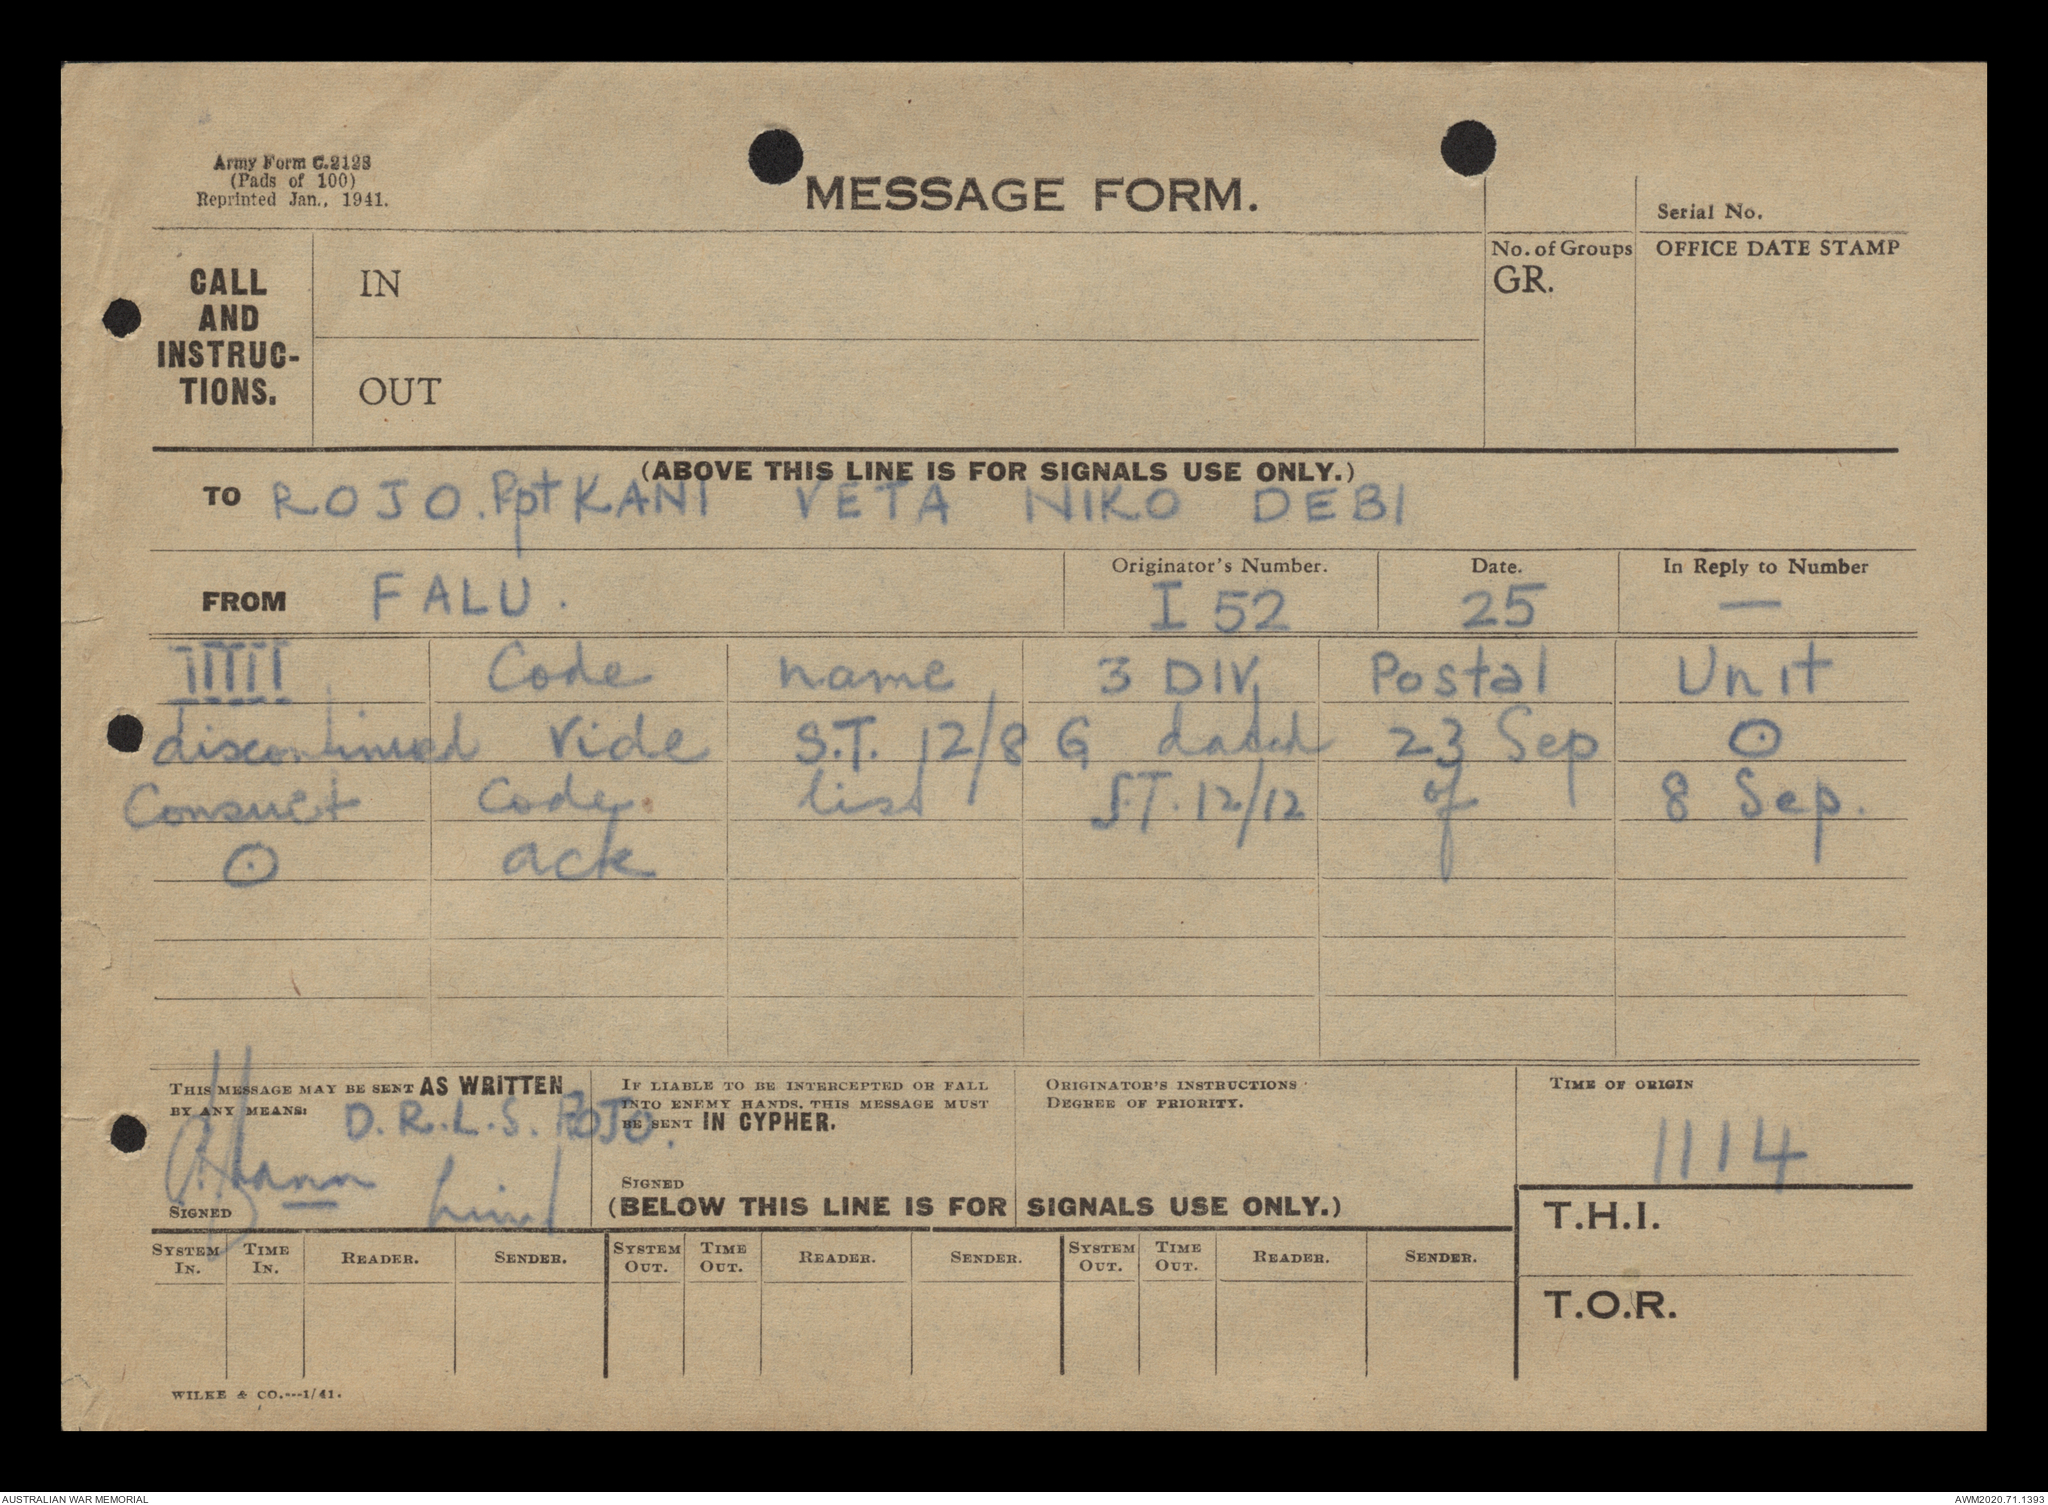 Army Form C.2128
(Pads of 100)
Reprinted Jan., 1941.
MESSAGE FORM.
Serial No.
CALL AND INSTRUC-TIONS.
IN
OUT
No. of Groups
GR.
OFFICE DATE STAMP
(ABOVE THIS LINE IS FOR SIGNALS USE ONLY.)
TO ROJO. Rpt KANI VETA NIKO DEBI
FROM FALU.
Originator's Number. I 52
Date. 25
In Reply to Number —
IIIII Code name 3 DIV Postal Unit
discontinued vide S.T. 12/8 G dated 23 Sep ⊙
Code list S.T. 12/12 of 8 Sep.
⊙ ack
THIS MESSAGE MAY BE SENT AS WRITTEN
BY ANY MEANS:
D.R.L.S. ROJO.
SIGNED
IF LIABLE TO BE INTERCEPTED OR FALL
INTO ENEMY HANDS, THIS MESSAGE MUST
BE SENT IN CYPHER.
SIGNED
ORIGINATOR'S INSTRUCTIONS
DEGREE OF PRIORITY.
TIME OF ORIGIN
1114
(BELOW THIS LINE IS FOR SIGNALS USE ONLY.)
T.H.I.
T.O.R.
SYSTEM IN. TIME IN. READER. SENDER. SYSTEM OUT. TIME OUT. READER. SENDER. SYSTEM OUT. TIME OUT. READER. SENDER.
WILKE & CO.---1/41.
AUSTRALIAN WAR MEMORIAL
AWM2020.71.1393